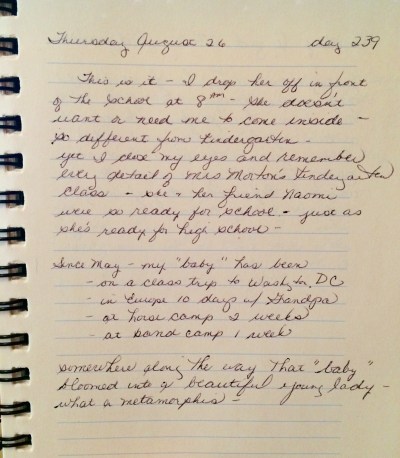 Thursday August 26 day 239
This is it - I drop her off in front
of the school at 8 AM - she doesnt
want or need me to come inside -
so different from Kindergarten -
yet I close my eyes and remember
every detail of Mrs Morton's Kindergarten
class - she & her friend Naomi
were so ready for school - just as
she's ready for high school -
Since May - my "baby" has been
- on a class trip to Washgtn, DC
- in Europe 10 days w/ Grandpa
- at horse camp 2 weeks
- at band camp 1 week
somewhere along the way that "baby"
bloomed into a beautiful young lady -
what a metamorphis -